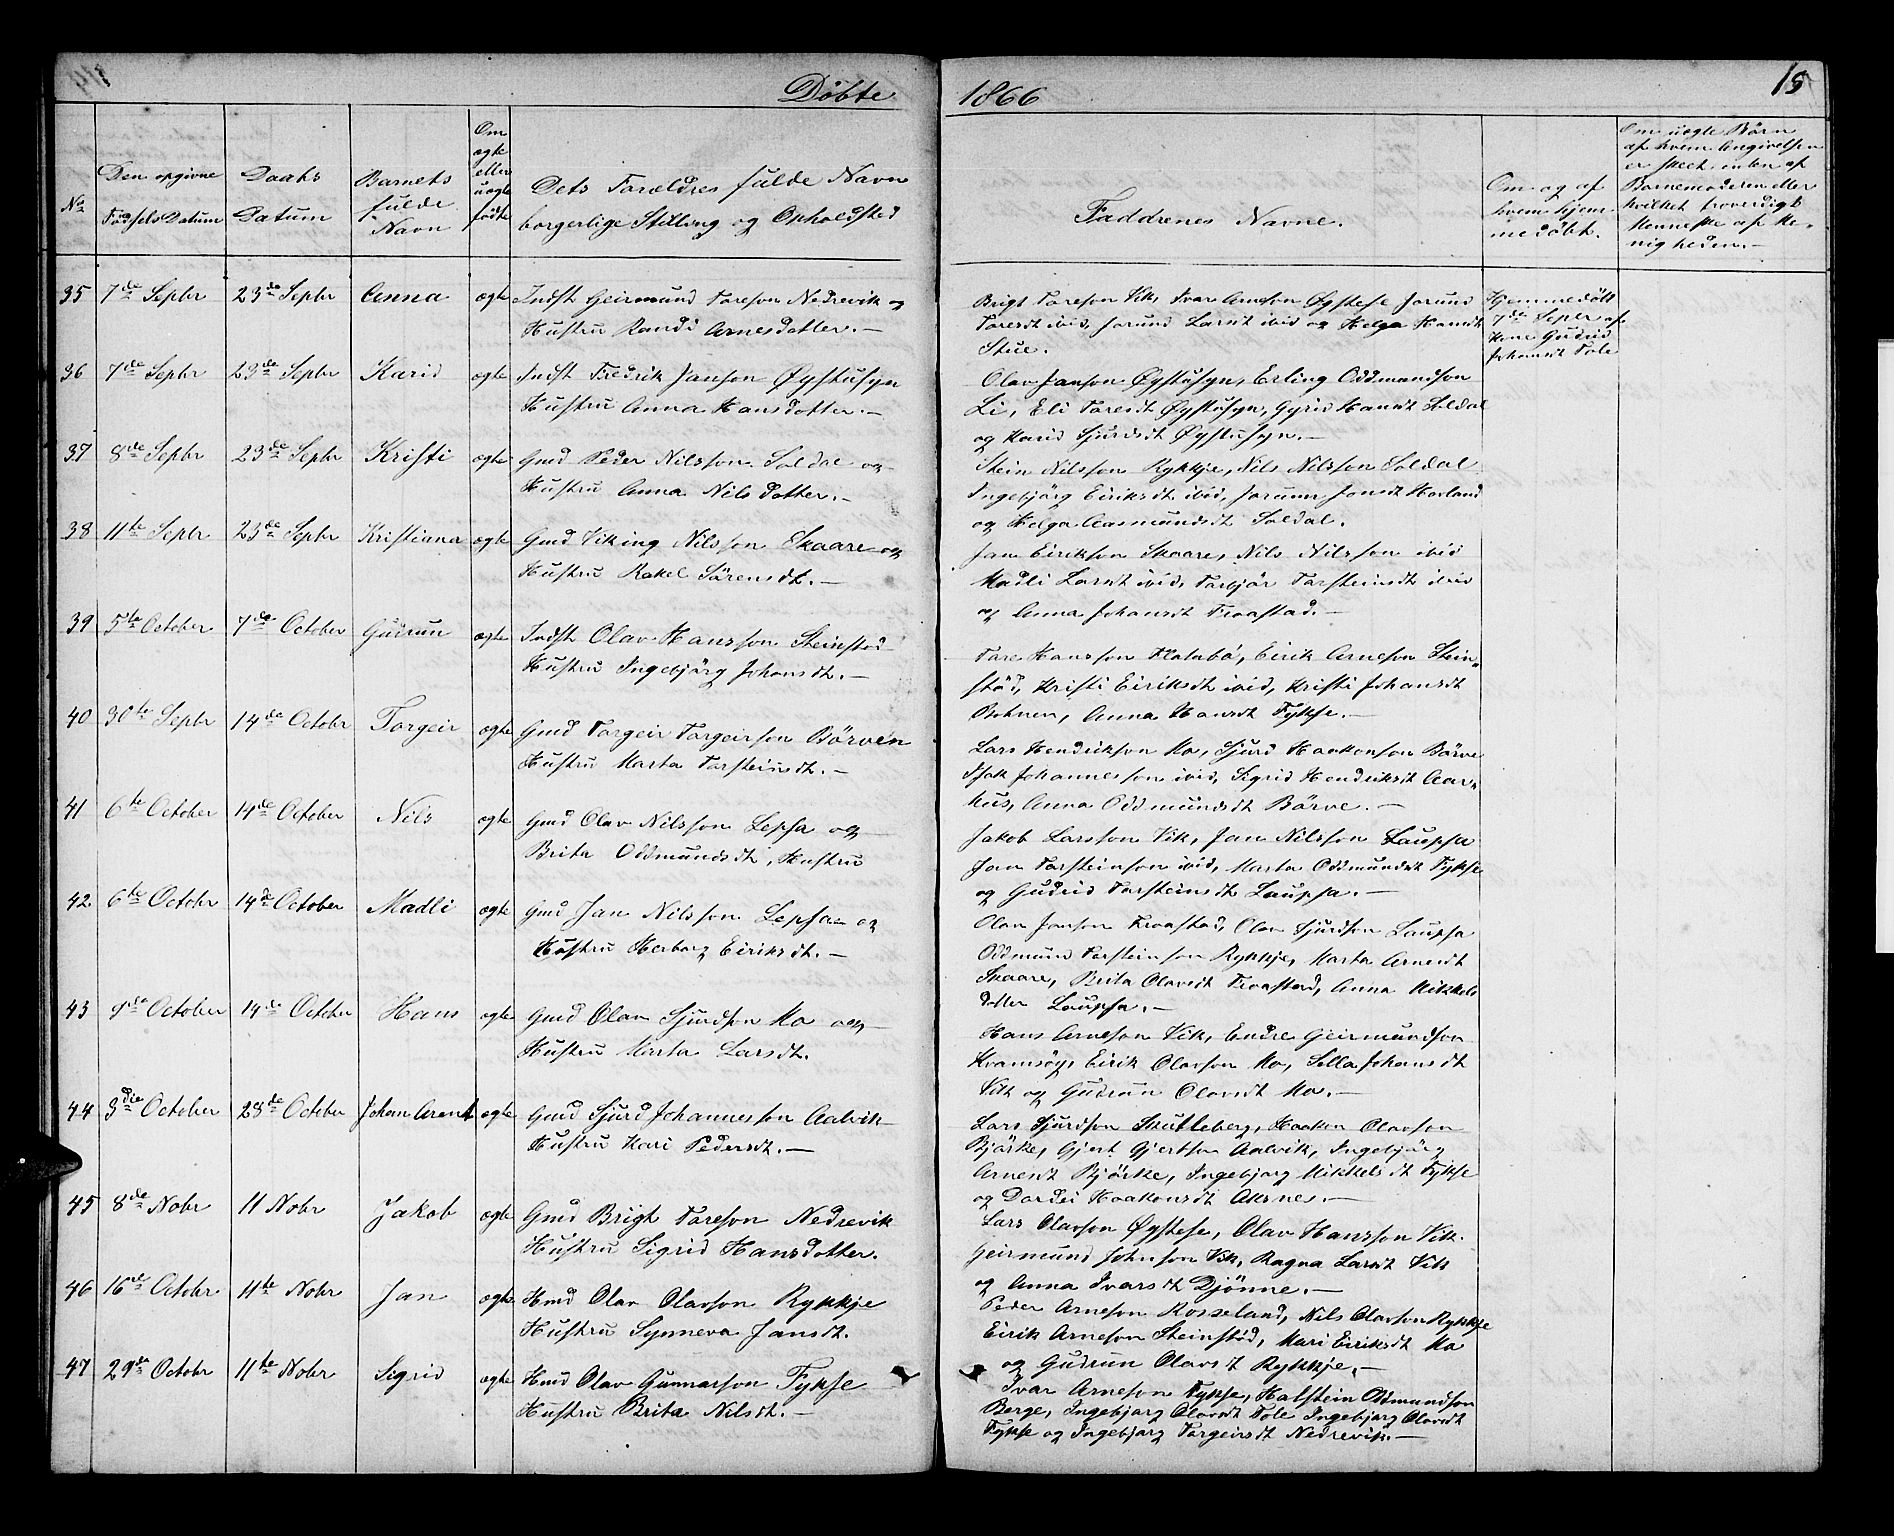 Döbte
1866
15
No
Den opgivne
Fødsels Datum
Daabs
Datum
Barnets
fulde
Navn
Om
ægte
eller
uægte
fødte
Dets Forældres fulde Navn
borgerlige Stilling og Opholdsted
Faddrenes Navne.
Om og af
hvem hjem-
medöbt.
Om uægte Börn
af hvem Angivelsen
er skeet, enten af
Barnemoderen eller
hvilket troverdigt
Menneske af Me-
nigheden.-
35 7de Sepbr 23de Sepbr Anna ægte Indst Geirmund Toreson Nedrevik og
Hustru Randi Arnesdotter.-
Brigt Toreson Vik, Ivar Arneson Øystese Jorund
Toresdt ibid, Jorund Larsdt ibid og Helga Hansdt
Stue.
Hjemmedöbt
7de Sepbr af
Kone Gudrid
Johansdt Tole
36 7de Sepbr 23de Sepbr Karid ægte Indst Fredrik Janson Øystusyn
Hustru Anna Hansdotter.-
Olav Janson Øystusyn, Erling Oddmundson
Li, Eli Toresdt Øystusyn, Gyrid Hansdt Soldal
og Karid Sjursdt Øystusyn.-
37 8de Sepbr 23de Sepbr Kristi ægte Gmd Peder Nilsson Soldal og
Hustru Anna Nilsdotter.-
Stein Nilsson Rykkje, Nils Nilsson Soldal
Ingebjörg Eiriksdt ibid, Jorunn Jonsdt Hovland
og Helga Aasmundsdt Soldal.
38 11te Sepbr 23de Sepbr Kristiana ægte Gmd Viking Nilsson Skaare og
Hustru Rakel Sörensdt.-
Jan Eirikson Skaare, Nils Nilsson ibid
Madli Larsdt ibid, Torbjör Torsteinsdt ibid
og Anna Johansdt Froastad.-
39 5te October 7de October Gudrun ægte Indst Olav Hansson Steinstöd
Hustru Ingebjörg Johansdt.-
Tore Hansson Flatabö, Eirik Arneson Stein-
stöd, Kristi Eiriksdt ibid, Kristi Johansdt
Botnen, Anna Hansdt Fykse.-
40 30te Sepbr 14de Octobr Torgeir ægte Gmd Torgeir Torgeirson Börven
Hustru Marta Torsteinsdt.-
Lars Hendrikson Mo, Sjurd Haakonson Börve
Isak Johannesson ibid, Sigrid Hendriksdt Aar-
hus, Anna Oddmundsdt Börve.-
41 6te October 14de October Nils ægte Gmd Olav Nilsson Lepsa og
Brita Oddmundsdt, Hustru
Jakob Larsson Vik, Jan Nilsson Laupsa
Jon Torsteinson ibid, Marta Oddmundsdt Fykse
og Gudrid Torsteinsdt Laupsa.-
42 6te Octobr 14de October Madli ægte Gmd Jan Nilsson Lepsa og
Hustru Herborg Eiriksdt.-
Olav Jonson Froastad, Olav Sjurdson Laupsa
Oddmund Torsteinson Rykkje, Marta Arnesdt
Skaare, Brita Olavsdt Froastad, Anna Mikkels
dotter Laupsa.-
43 9de October 14de October Hans ægte Gmd Olav Sjurdson Mo og
Hustru Marta Larsdt.
Hans Arneson Vik, Endre Geirmundson
Kvamsöy, Eirik Olavson Mo, Sella Johansdt
Vik og Gudrun Olavsdt Mo.-
44 3die October 28de October Johan Arent ægte Gmd Sjurd Johannesson Aalvik
Hustru Kari Pedersdt.-
Lars Sjurdson Skutleberg, Haakon Olavson
Bjórke, Gjert Gjertson Aalvik, Ingebjörg
Arnesdt Bjórke, Ingebjorg Mikkelsdt Fykse
og Dordei Haakonsdt Aksnes.-
45 8de Nobr 11 Nobr Jakob ægte Gmd Brigt Toreson Nedrevik
Hustru Sigrid Hansdotter.
Lars Olavson Øystese, Olav Hansson Vik.
Geirmund Johnson Vik, Ragna Larsdt Vik
og Anna Ivarsdt Djönne.-
46 16de October 11te Nobr Jan ægte Hmd Olav Olavson Rykkje
Hustru Synneva Jansdt.
Peder Arneson Rosseland, Nils Olavson Rykkje
Eirik Arneson Steinstöd, Mari Eiriksdt Mo
og Gudrun Olavsdt Rykkje.-
47 29de Octobr 11te Nobr Sigrid ægte Hmd Olav Gunnarson Fykse
Hustru Brita Nilsdt.-
Ivar Arneson Fykse, Halstein Oddmundson
Berge, Ingebjorg Olavsdt Tole Ingebjorg Olavsdt
Fykse og Ingebjorg Torgeirsdt Nedrevik.-